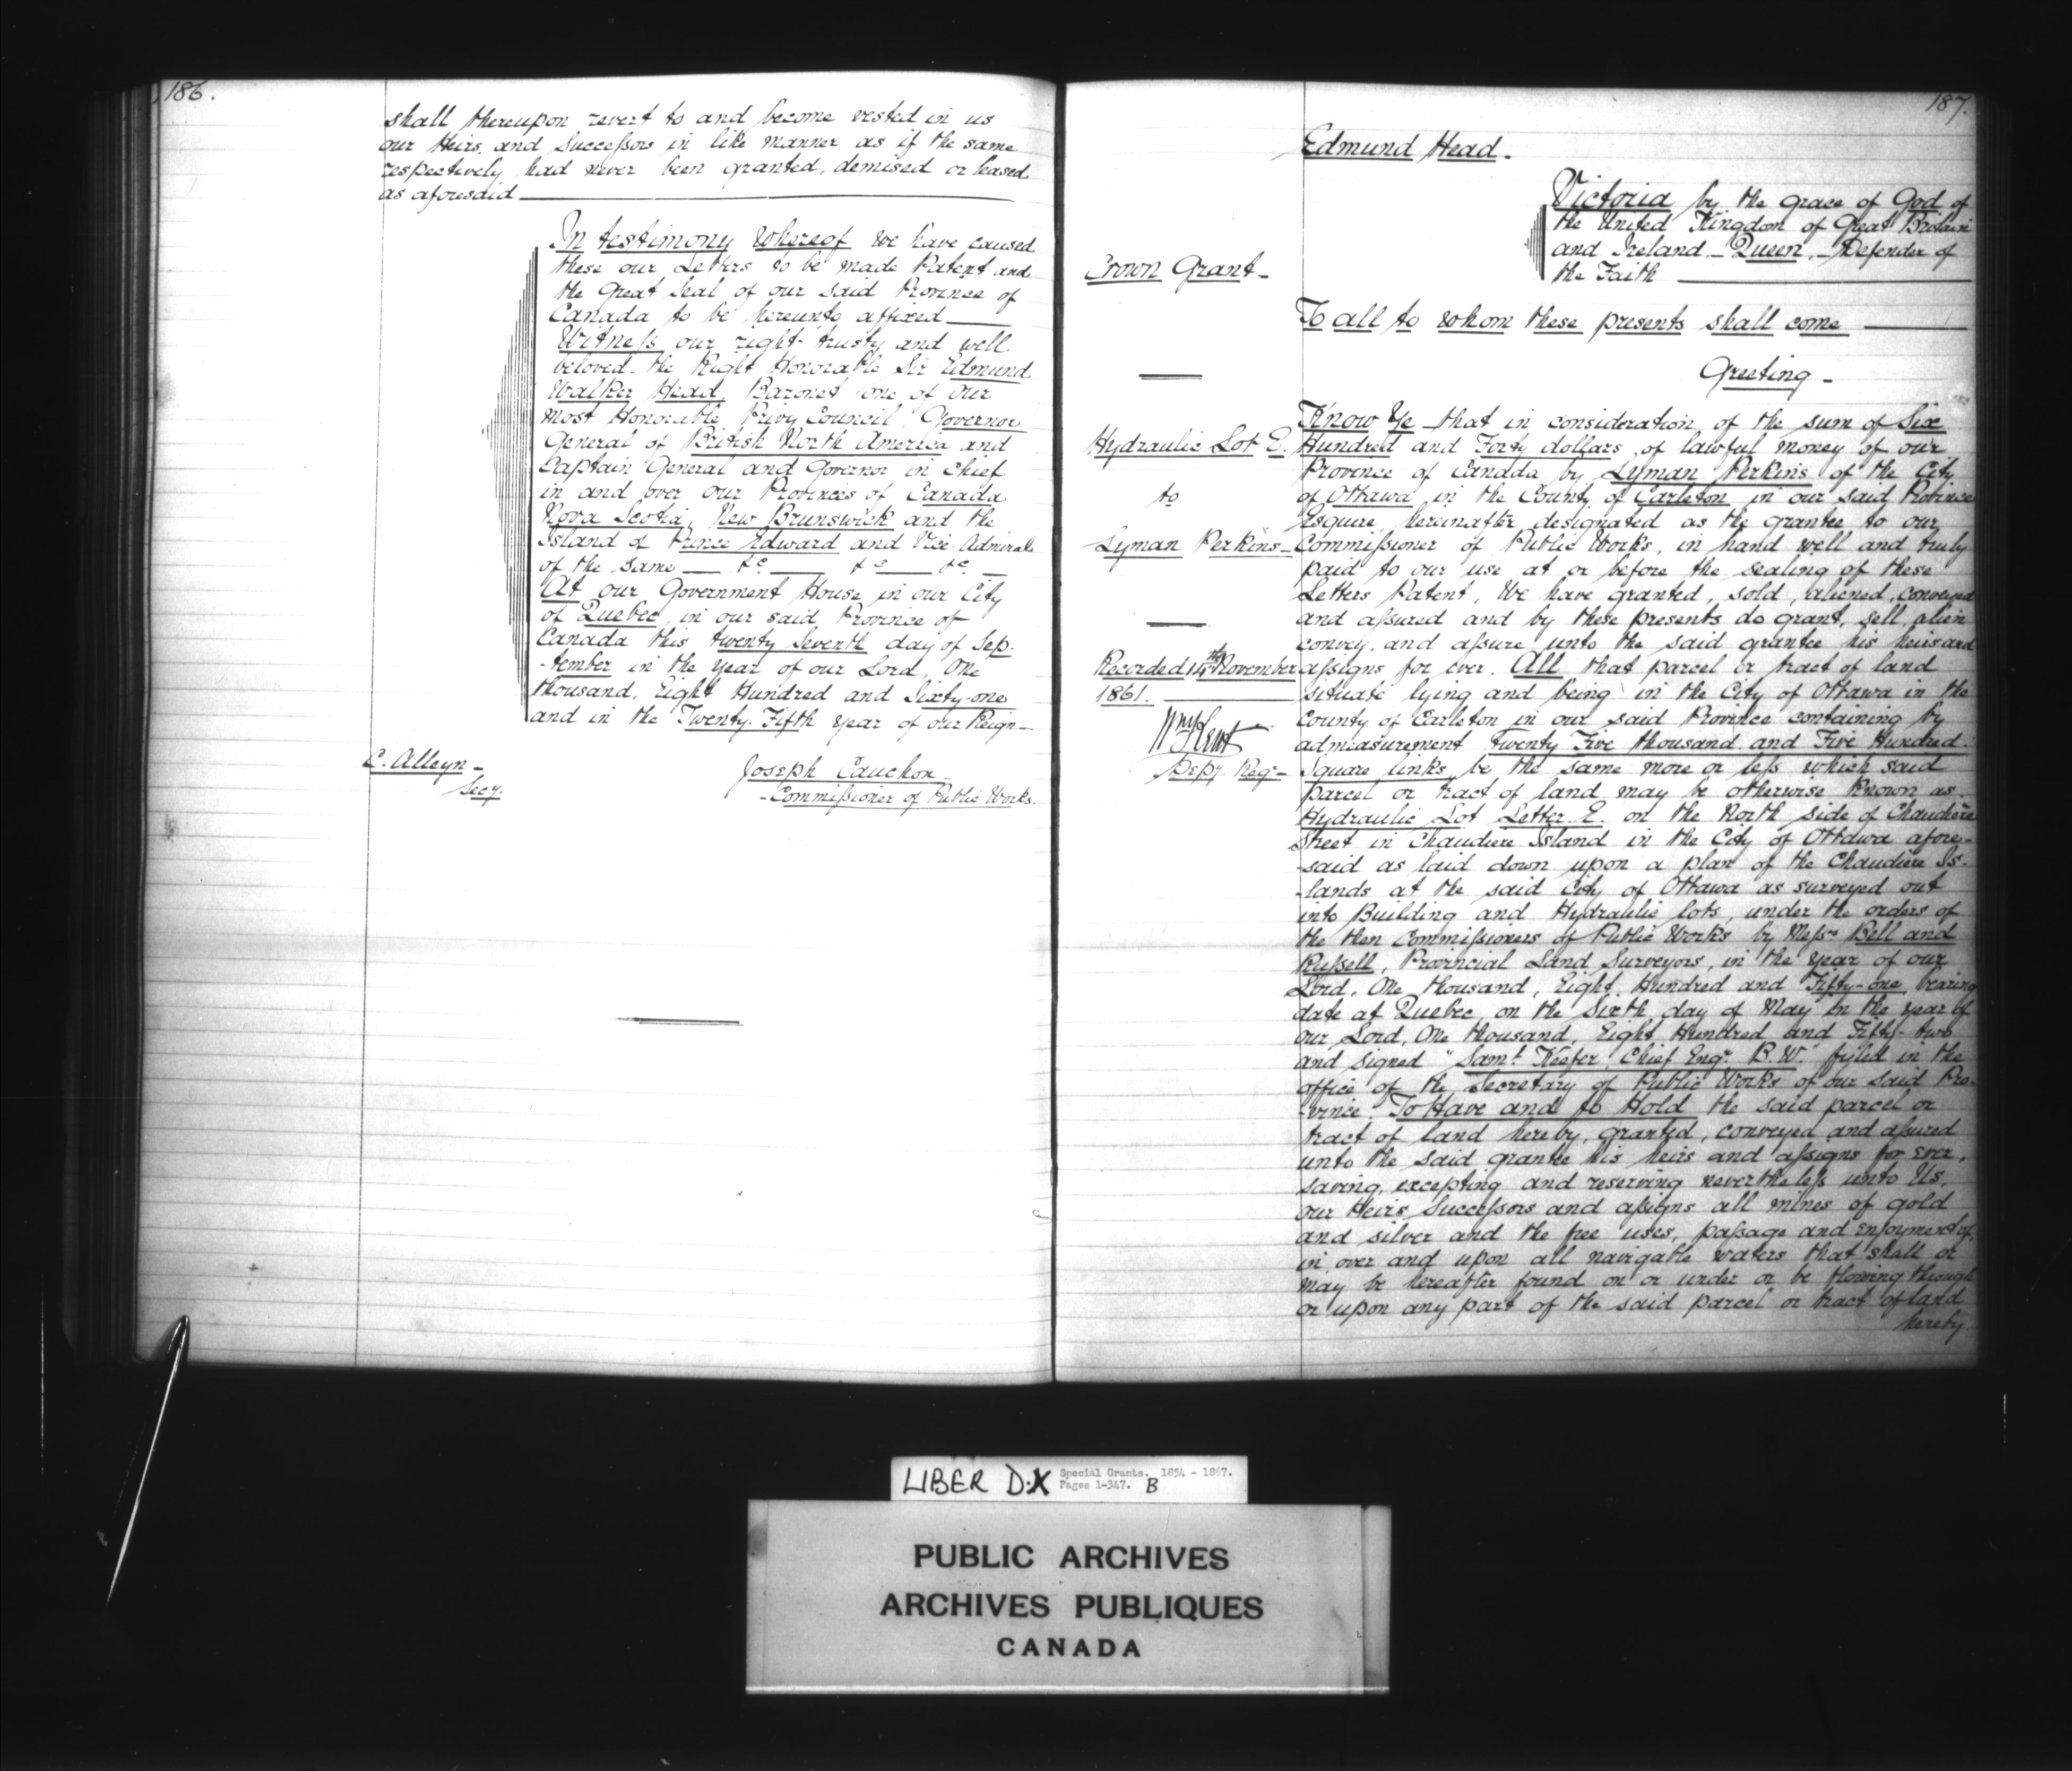 186.
shall thereupon revert to and become vested in us
our Heirs, and Successors in like manner as if the same
respectively had never been granted, demised or leased
as aforesaid
In testimony Whereof We have caused
these our Letters to be made Patent and
the Great Seal of our said Province of
Canada to be hereunto affixed
Witness our right trusty and well
beloved the Right Honorable Sir Edmund
Walker Head, Baronet one of our
most Honorable Privy Council, Governor
General of British North America and
Captain General and Governor in Chief
in and over our Provinces of Canada
Nova Scotia, New Brunswick and the
Island of Prince Edward and Vice Admiral
of the same &c &c &c
At our Government House in our City
of Quebec, in our said Province of
Canada this twenty Seventh day of Sep-
-tember in the year of our Lord, One
thousand, Eight Hundred and Sixty-one
and in the Twenty-Fifth year of our Reign-
C. Alleyn-
Secy.
Joseph Cauchon
-Commissioner of Public Works.
187.
Edmund Head-
Victoria by the grace of God of
the United Kingdom of Great Britain
and Ireland - Queen, - Defender of
the Faith
To all to whom these presents shall come
Greeting-
Crown Grant-
Hydraulic Lot E.
to
Lyman Perkins-
Recorded 14th November
1861.
Wm Kent
Depy. Regr-
Know Ye that in consideration of the sum of Six
Hundred and Forty dollars, of lawful money of our
Province of Canada by Lyman Perkins of the City
of Ottawa in the County of Carleton in our said Province
Esquire, hereinafter designated as the grantee to our
Commissioner of Public Works, in hand well and truly
paid to our use at or before the sealing of these
Letters Patent, We have granted, sold, aliened, conveyed
and assured and by these presents do grant, sell, alien
convey, and assure unto the said grantee his heirs and
assigns for ever. All that parcel or tract of land
situate lying and being in the City of Ottawa in the
County of Carleton in our said Province containing by
admeasurement Twenty Five thousand and Five Hundred
Square links be the same more or less which said
parcel or tract of land may be otherwise known as
Hydraulic Lot Letter E. on the North side of Chaudière
Street in Chaudiere Island in the City of Ottawa afore-
-said as laid down upon a plan of the Chaudière Is-
-lands at the said City of Ottawa as surveyed out
into Building and Hydraulic lots, under the orders of
the then Commissioners of Public Works by Messrs Bell and
Russell, Provincial Land Surveyors, in the year of our
Lord, One thousand, Eight Hundred and Fifty-one, bearing
date at Quebec, on the Sixth day of May in the year of
our Lord, One thousand, Eight Hundred and Fifty-two
and signed "Saml. Keefer, Chief Engr. B.W." fyled in the
office of the Secretary of Public Works of our said Pro-
-vince. To Have and to Hold the said parcel or
tract of land hereby, granted, conveyed and assured
unto the said grantee his heirs and assigns for ever,
saving, excepting and reserving nevertheless unto Us,
our Heirs, Successors and assigns all mines of gold
and silver and the free uses, passage and enjoyment of,
in, over and upon all navigable waters that shall or
may be hereafter found on or under or be flowing through
or upon any part of the said parcel or tract of land
hereby.
LIBER D.X Special Grants. 1854 - 1867.
Pages 1-347. B
PUBLIC ARCHIVES
ARCHIVES PUBLIQUES
CANADA